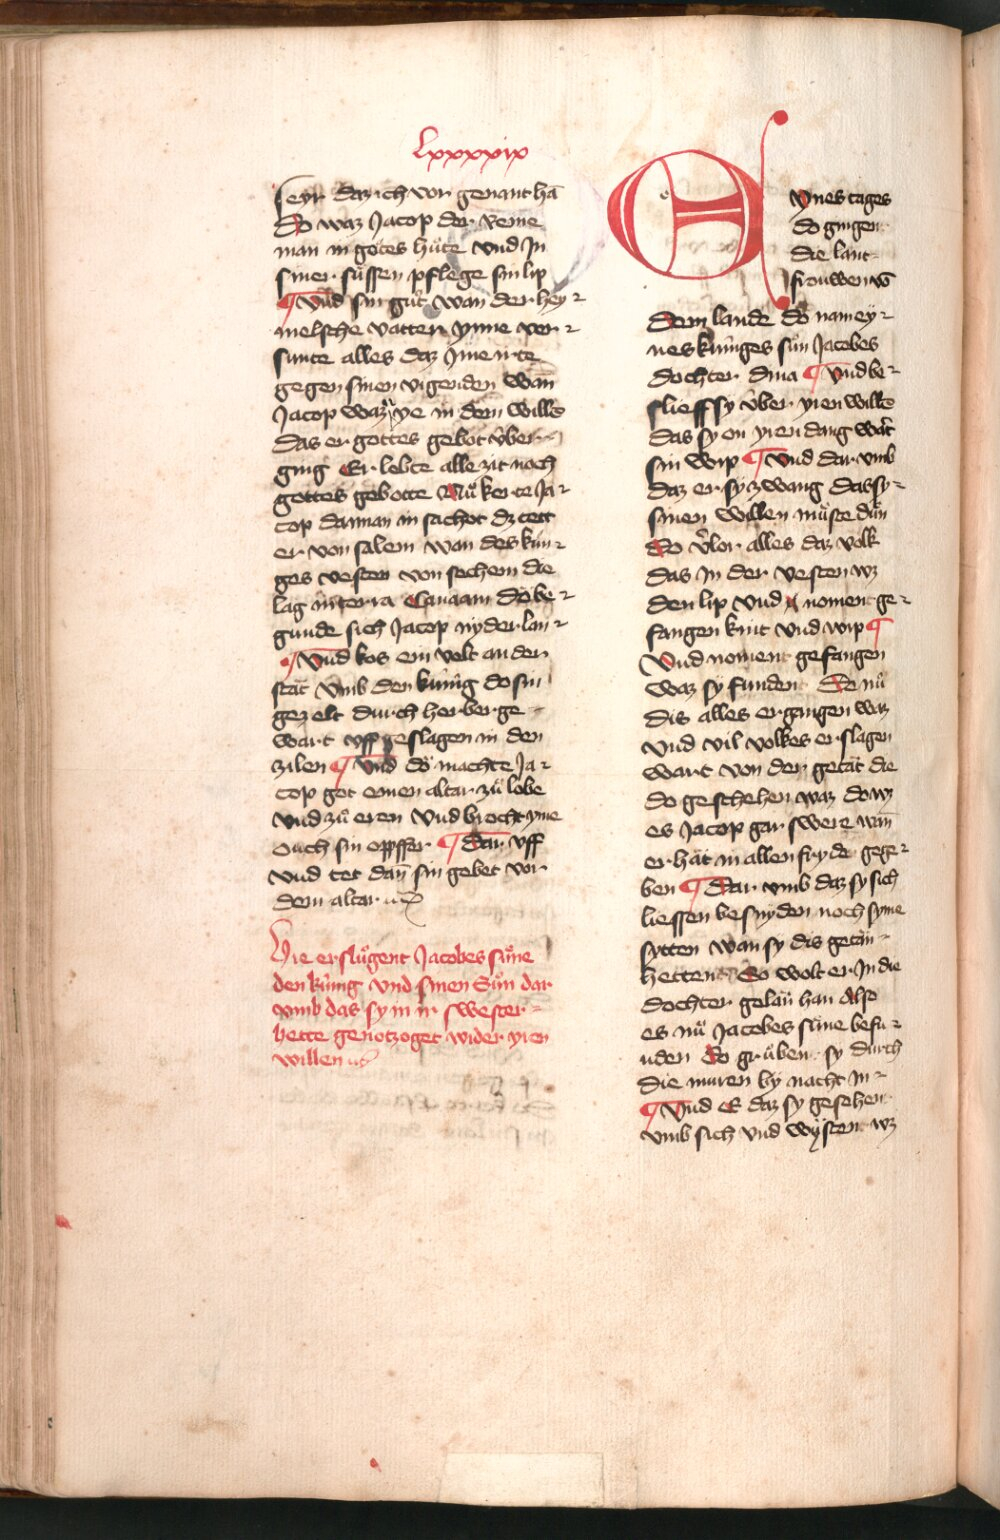 Lxxxxix
seyr daz ich vor genant hā
do waz Jacop der reine
man in gotes hůte vnd In
siner süssen pflege sin lip
¶ Vnd sin gůt wan der hey-
melsche vatter ynne ver-
sunte alles daz yme irte
gegen sinen vigenden wan
Jacop waz ye in dem willē
das er gottes gebot über-
ging Er lebte alle zit noch
gottes gebotte Nů kerte Ja-
cop dannan in sachot dz tett
er von salem wan des kün-
ges vesten von sechem die
lag in terra Canaam do be-
gunde sich Jacop nyder lan-
¶ Vnd kos ein velt an der
stat vmb den künig do sin
gezelt durch herberge -
wart vff geslagen in den
zilen ¶ Vnd do machte Ja-
cop got einen altar zů lobe
vnd zů eren vnd brocht yme
ouch sin oppffer ¶ Dar vff
vnd tet dan̄ sin gebet vor
dem altar
Hie erslůgent Jacobes sůne
den künig vnd sinen Sůn dar
vmb das sy in ir swester -
hette genotzoget wider yren
willen
EYnes tages
do gingen
die lant-
frouwen vō
dem lande do nam ey-
nes küniges sůn Jacobes
dochter dina ¶ Vnd be-
slieff sy über yren willē
das sy on yren dang wart
sin wip ¶ Vnd dar vmb
daz er sy zwang das sy -
sinen willen můste důn
Do v̓lor alles daz volk
das in der vesten wz
den lip vnd nomen ge-
fangen kint vnd wip ¶
Vnd noment gefangen
waz sy funden Do nů
dis alles ergangen waz
vnd vil volkes erslagen
wart von der getät die
do geschehen waz do wz
es Jacop gar swere wan̄
er hät in allen fryde gege-
ben ¶ Dar vmb daz sy sich
liessen besnyden noch syme
sytten wan sy dis getan -
hetten So wolt er In die
dochter gelan han Also
es nů Jacobes süne befu-
nden Do grůben sy durch
die muren by nacht in -
¶ Vnd E daz sy gesehen
vmb sich vnd wysten wz